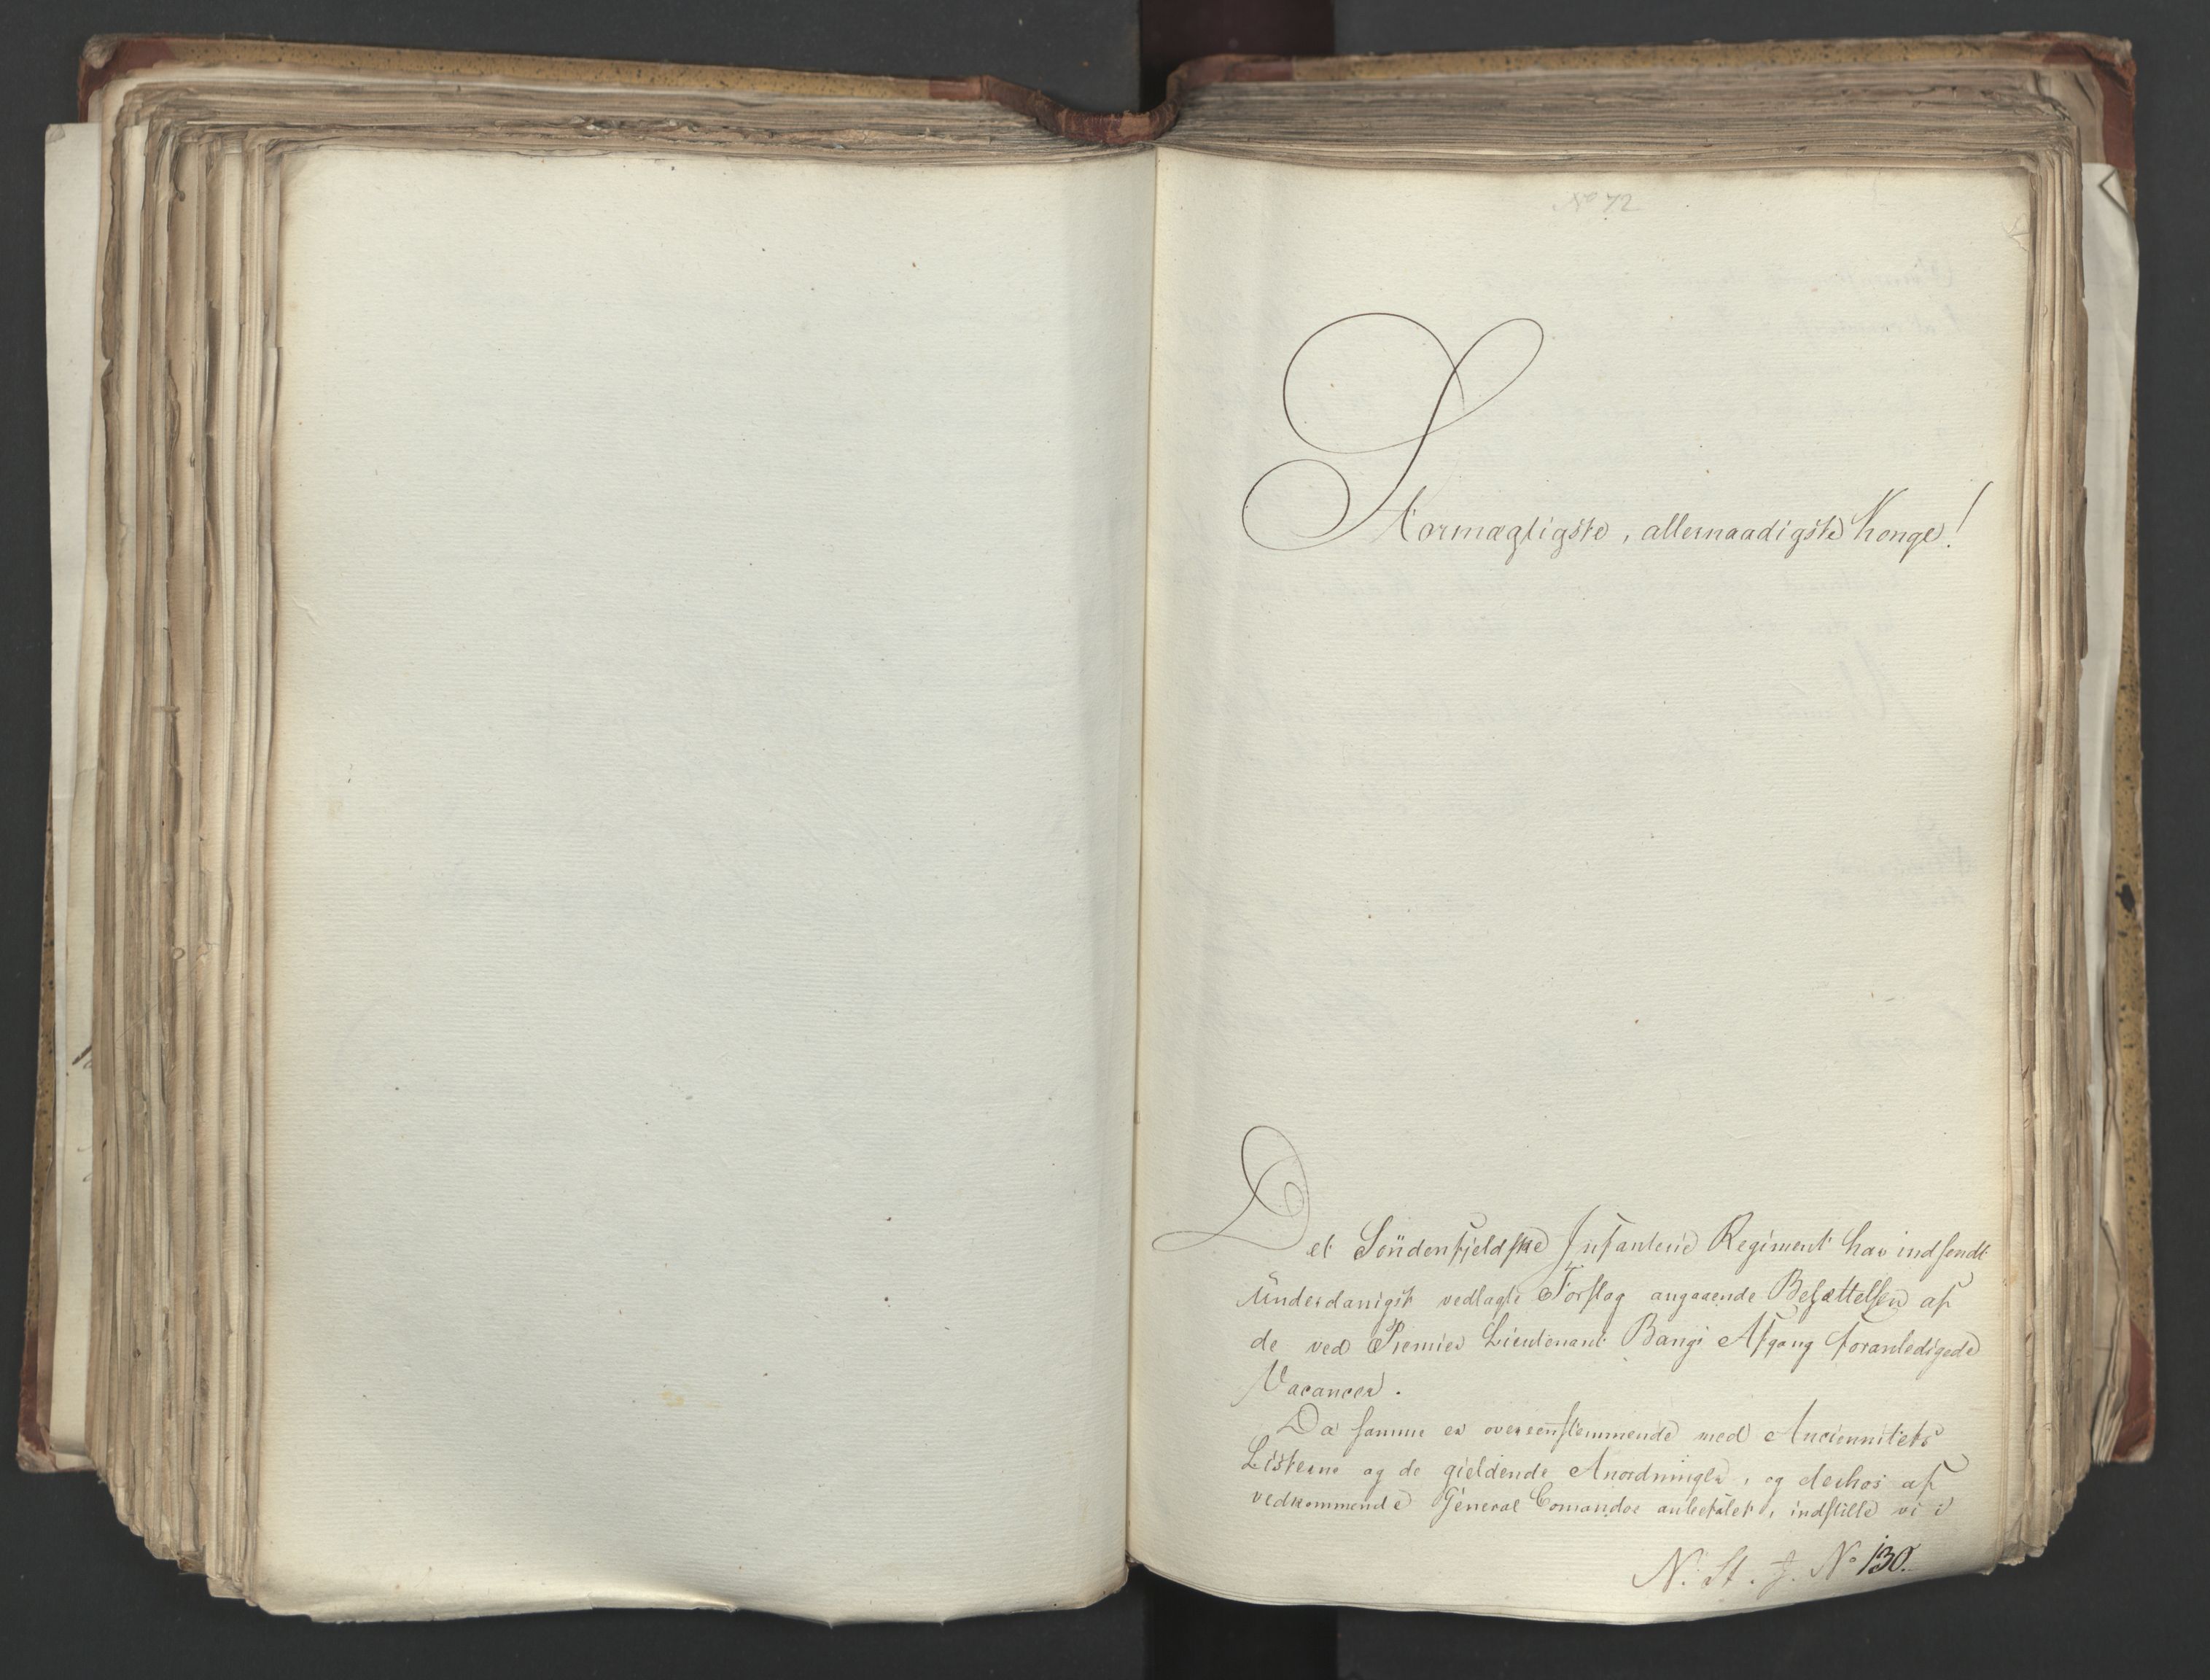 No 72
Stormægtigste, allernaadigste Konge!
Det Söndenfjeldske Infanterie Regiment har indsendt
underdanigst vedlagte Forslag angaaende Besættelsen af
de ved Premier Lieutenant Bangs Afgang foranledigede
Vacancer.
Da samme er overeenstemmende med Anciennitets
Listerne og de gieldende Anordninger, og derhos af
vedkommende General Comandoe anbefalet, indstille vi i
N. St. J. No 130.